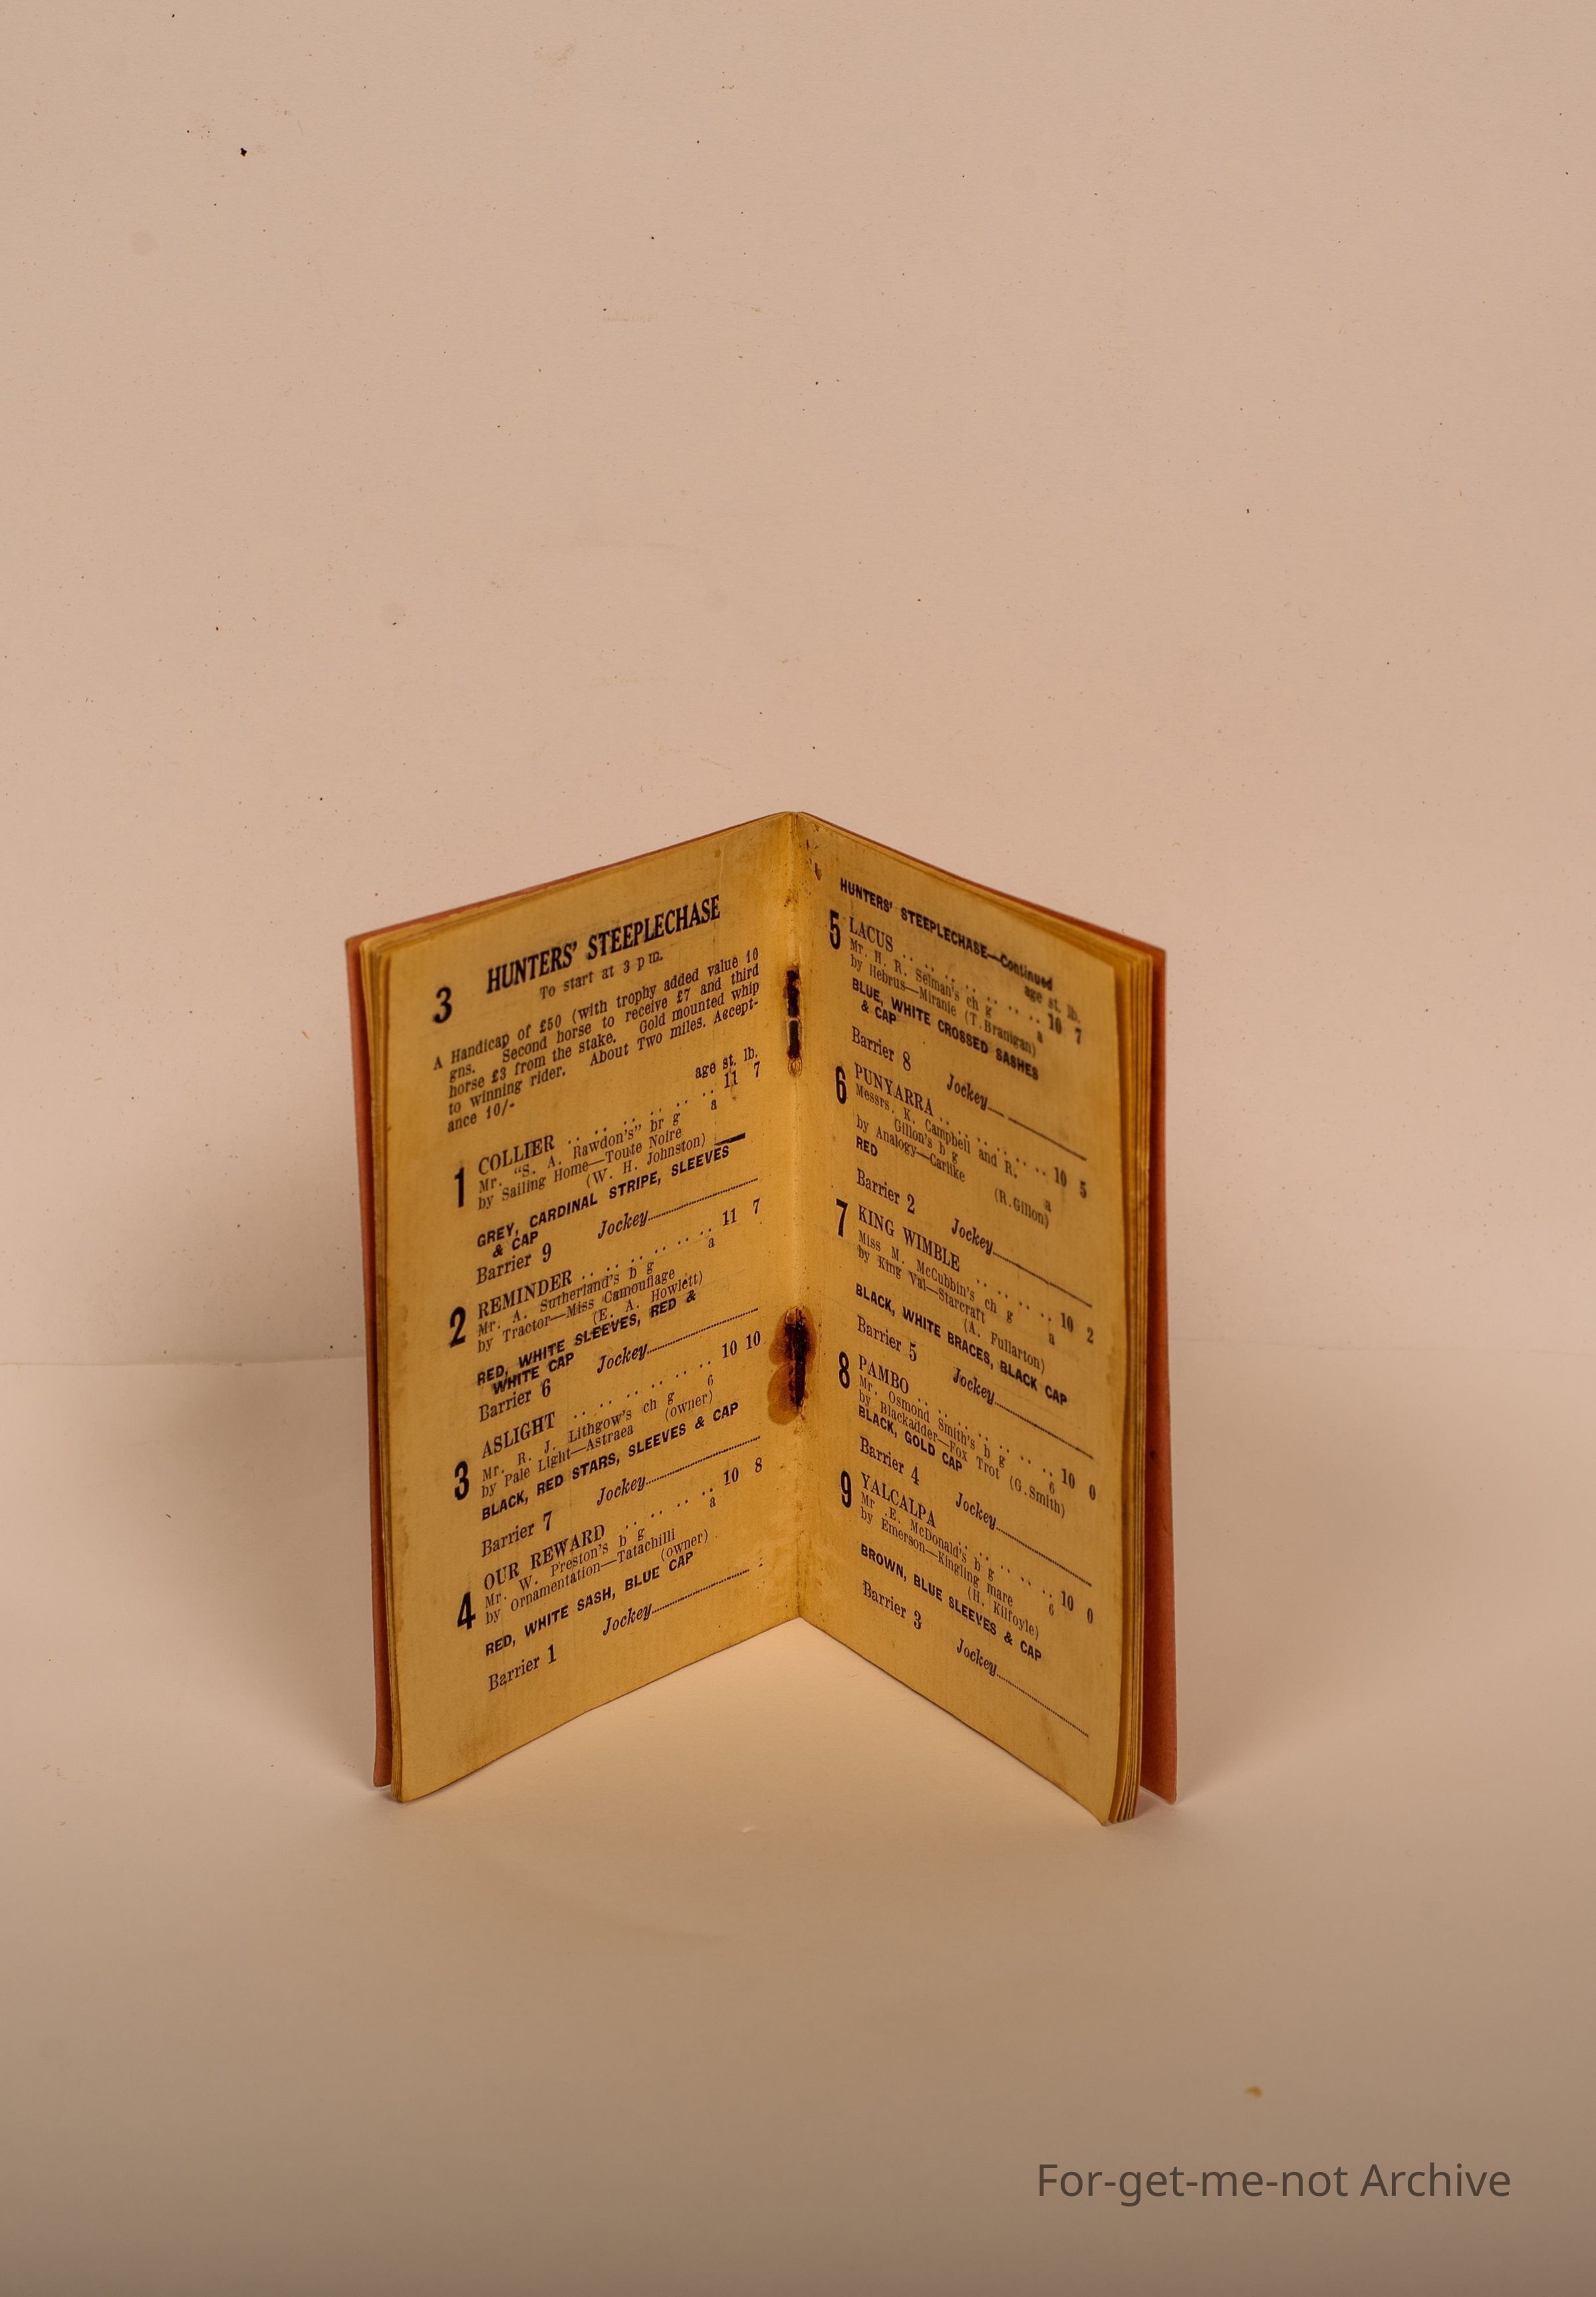 3 HUNTERS' STEEPLECHASE
To start at 3 p m.
A Handicap of £50 (with trophy added value 10
gns. Second horse to receive £7 and third
horse £3 from the stake. Gold mounted whip
to winning rider. About Two miles. Accept-
ance 10/-
age st. lb.
1 COLLIER .. .. .. .. .. .. .. 11 7
Mr. "S. A. Rawdon's" br g a
by Sailing Home—Toute Noire
(W. H. Johnston)
GREY, CARDINAL STRIPE, SLEEVES
& CAP
Barrier 9 Jockey
2 REMINDER .. .. .. .. .. .. 11 7
Mr. A. Sutherland's b g a
by Tractor—Miss Camouflage
(E. A. Howlett)
RED, WHITE SLEEVES, RED &
WHITE CAP
Barrier 6 Jockey
3 ASLIGHT .. .. .. .. .. .. 10 10
Mr. R. J. Lithgow's ch g 6
by Pale Light—Astraea (owner)
BLACK, RED STARS, SLEEVES & CAP
Barrier 7 Jockey
4 OUR REWARD .. .. .. .. 10 8
Mr. W. Preston's b g a
by Ornamentation—Tatachilli
(owner)
RED, WHITE SASH, BLUE CAP
Barrier 1 Jockey
HUNTERS' STEEPLECHASE—Continued
age st. lb.
5 LACUS .. .. .. .. .. .. .. 10 7
Mr. H. R. Selman's ch g a
by Hebrus—Miranie (T. Branigan)
BLUE, WHITE CROSSED SASHES
& CAP
Barrier 8 Jockey
6 PUNYARRA .. .. .. .. .. .. 10 5
Messrs. K. Campbell and R.
Gillon's b g a
by Analogy—Carlike (R.Gillon)
RED
Barrier 2 Jockey
7 KING WIMBLE .. .. .. .. .. 10 2
Miss M. McCubbin's ch g a
by King Val—Starcraft
(A. Fullarton)
BLACK, WHITE BRACES, BLACK CAP
Barrier 5 Jockey
8 PAMBO .. .. .. .. .. .. .. 10 0
Mr. Osmond Smith's b g 6
by Blackadder—Fox Trot (G.Smith)
BLACK, GOLD CAP
Barrier 4 Jockey
9 YALCALPA .. .. .. .. .. .. 10 0
Mr .E. McDonald's b g 6
by Emerson—Kingling mare
(H. Kilfoyle)
BROWN, BLUE SLEEVES & CAP
Barrier 3 Jockey
For-get-me-not Archive